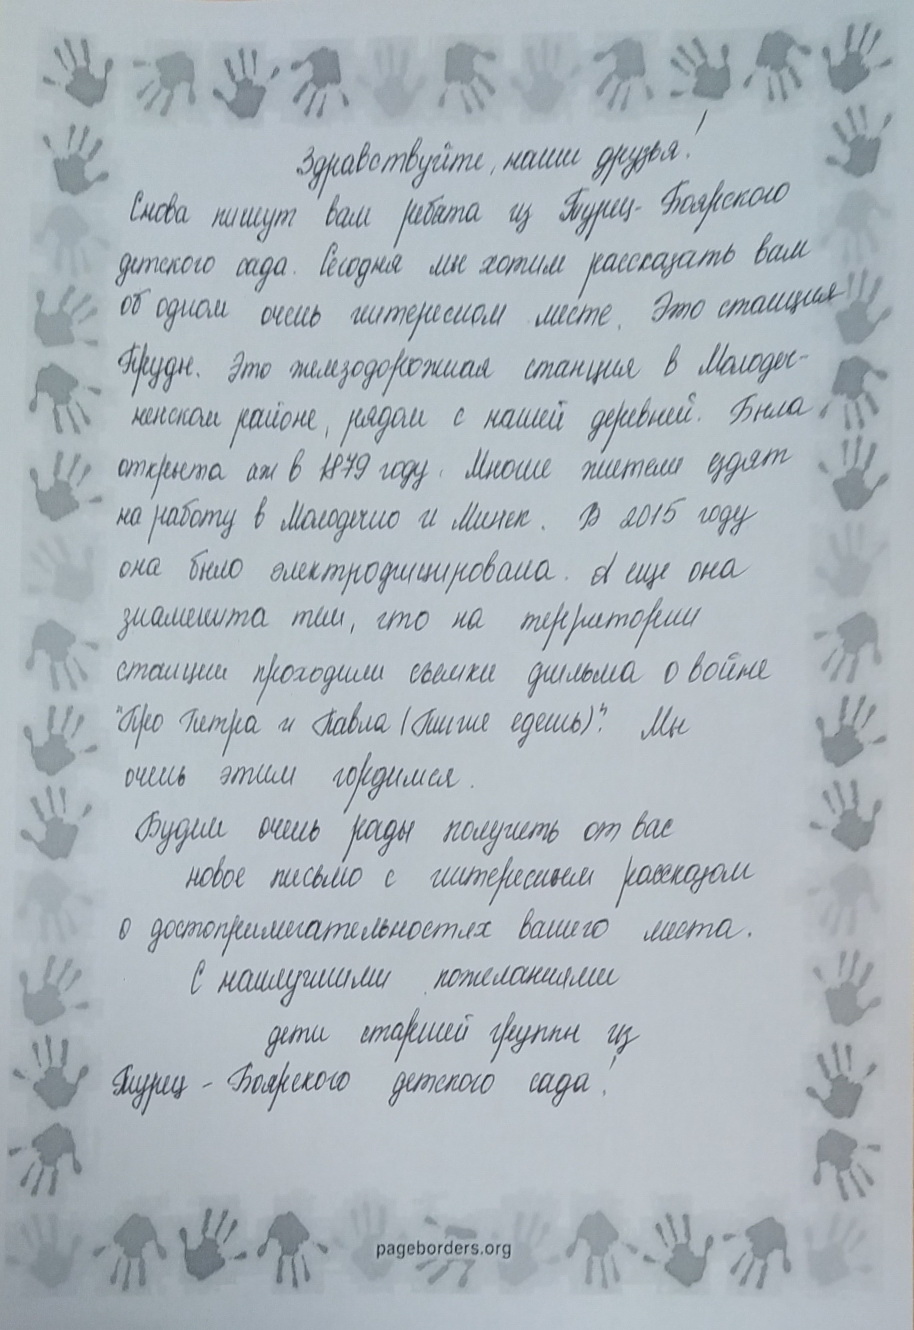 Здравствуйте, наши друзья!
Снова пишут вам ребята из Турец-Боярского
детского сада. Сегодня мы хотим рассказать вам
об одном очень интересном месте. Это станция
Пруды. Это железодорожная станция в Молодеч-
ненском районе, рядом с нашей деревней. Была
открыта аж в 1879 году. Многие жители ездят
на работу в Молодечно и Минск. В 2015 году
она было электрофицирована. А еще она
знаменита тем, что на территории
станции проходили сьемки фильма о войне
"Про Петра и Павла (Пигше едешь)". Мы
очень этим гордимся.
Будем очень рады получить от вас
новое письмо с интересным рассказом
о достопримечательностях вашего места.
С наилучшими пожеланиями
дети старшей группы из
Турец-Боярского детского сада!
pageborders.org